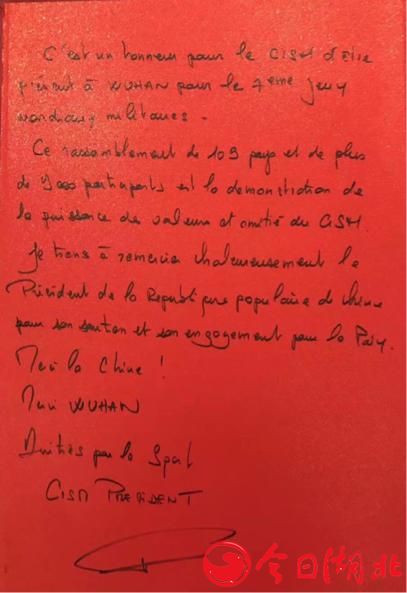 C'est un honneur pour le CISM d'être
présent à WUHAN pour le 7ème jeux
mondiaux militaires.
Ce rassemblement de 109 pays et de plus
de 9000 participants est la demonstration de
la puissance des valeurs et amitié du CISM.
Je tiens à remercier chaleureusement le
Président de la République populaire de Chine
pour son soutien et son engagement pour la Paix.
Merci la Chine !
Merci WUHAN
Amitiés par le Sport
CISM PRESIDENT
今日湖北